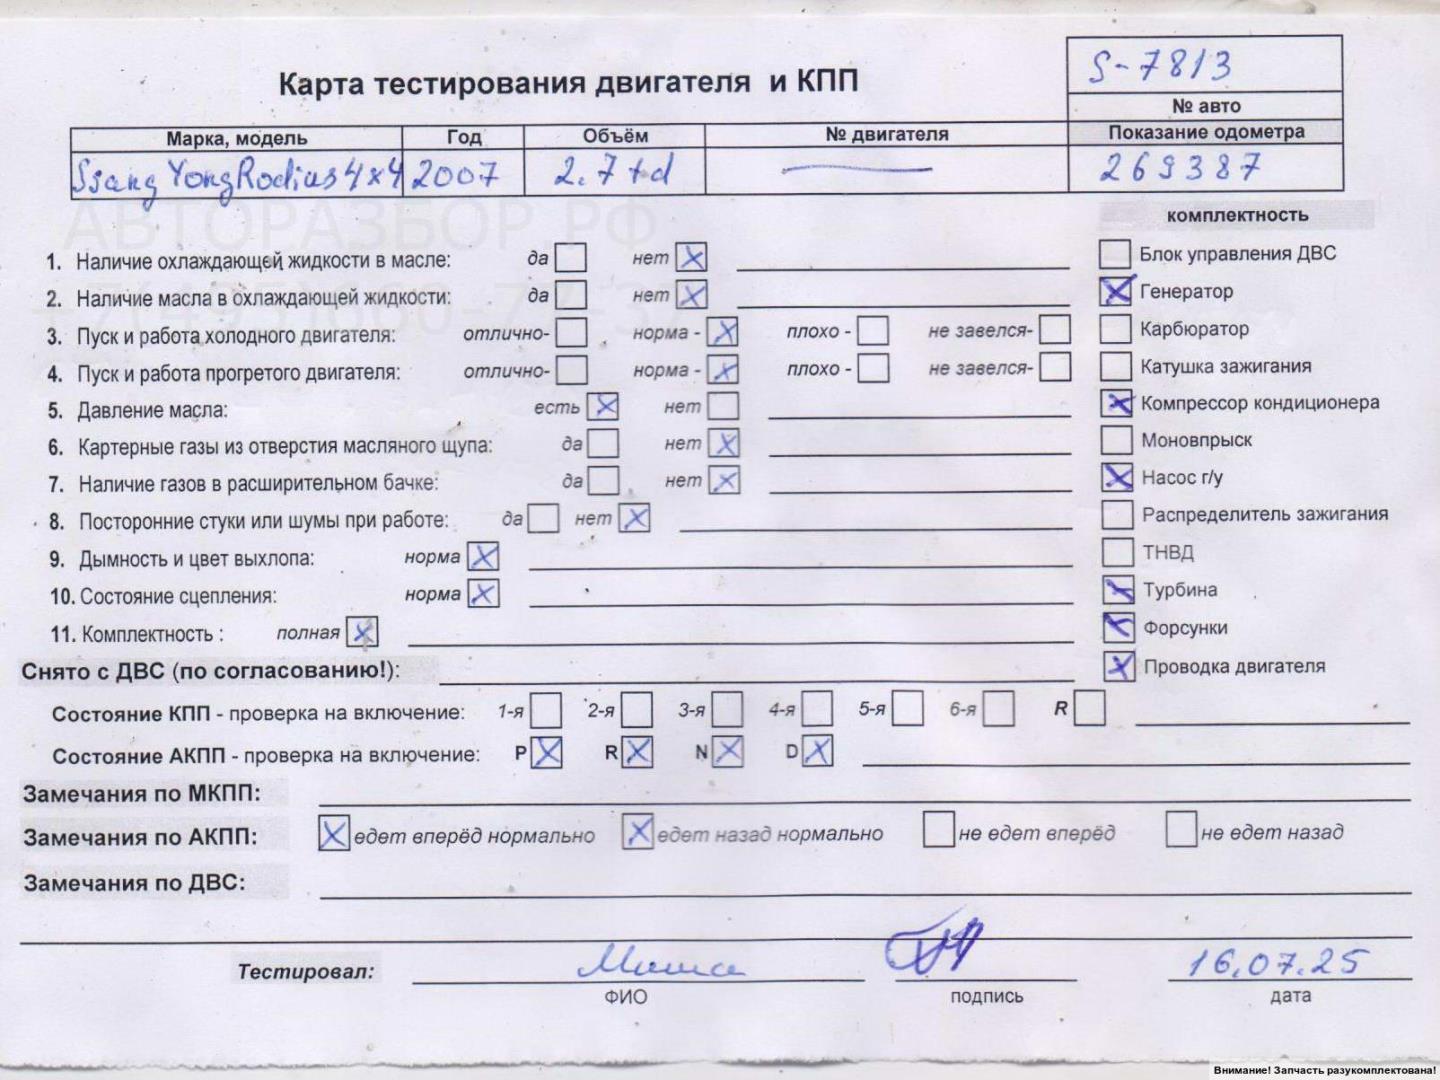 Карта тестирования двигателя и КПП
S-7813
№ авто
Марка, модель Год Объём № двигателя Показание одометра
Ssang Yong Rodius 4x4 2007 2.7 td 269387
АВТОРАЗБОР.РФ
комплектность
1. Наличие охлаждающей жидкости в масле: да нет
Блок управления ДВС
2. Наличие масла в охлаждающей жидкости: да нет
Генератор
3. Пуск и работа холодного двигателя: отлично- норма - плохо - не завелся-
Карбюратор
4. Пуск и работа прогретого двигателя: отлично- норма - плохо - не завелся-
Катушка зажигания
5. Давление масла: есть нет
Компрессор кондиционера
6. Картерные газы из отверстия масляного щупа: да нет
Моновпрыск
7. Наличие газов в расширительном бачке: да нет
Насос г/у
8. Посторонние стуки или шумы при работе: да нет
Распределитель зажигания
9. Дымность и цвет выхлопа: норма
ТНВД
10. Состояние сцепления: норма
Турбина
11. Комплектность : полная
Форсунки
Снято с ДВС (по согласованию!):
Проводка двигателя
Состояние КПП - проверка на включение: 1-я 2-я 3-я 4-я 5-я 6-я R
Состояние АКПП - проверка на включение: P R N D
Замечания по МКПП:
Замечания по АКПП: едет вперёд нормально едет назад нормально не едет вперёд не едет назад
Замечания по ДВС:
Тестировал: Миша 16.07.25
ФИО подпись дата
Внимание! Запчасть разукомплектована!